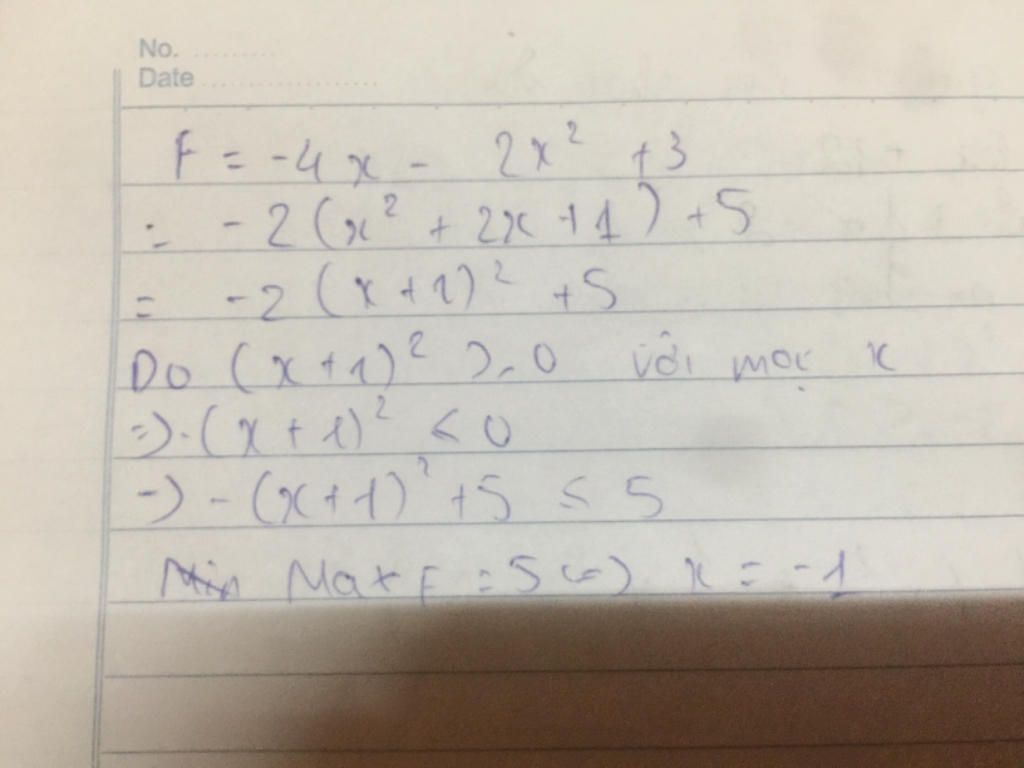 No. ............
Date ......................
F = -4x - 2x² + 3
= -2(x² + 2x + 1) + 5
= -2(x + 1)² + 5
Do (x + 1)² ≥ 0 với mọi x
=> -(x + 1)² ≤ 0
=> -(x + 1)² + 5 ≤ 5
Min Max F = 5 <=> x = -1